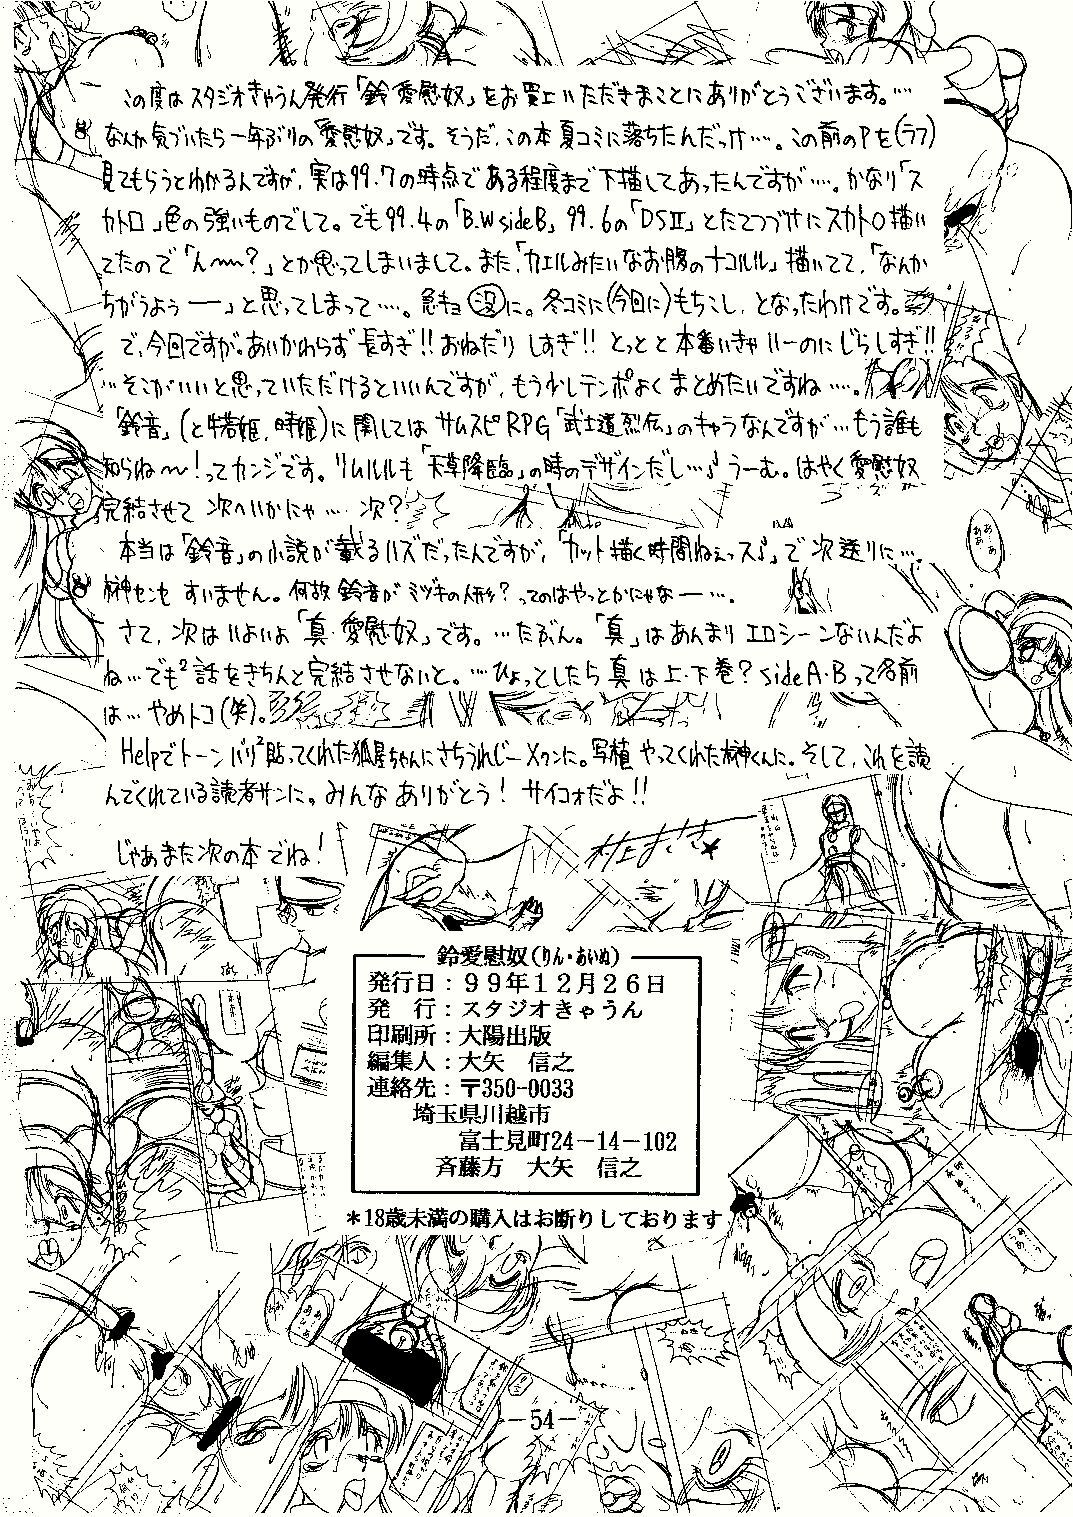 この度はスタジオきゃうん発行「鈴愛慰奴」をお買上いただきまことにありがとうございます。…
なんか気づいたら一年ぶりの「愛慰奴」です。そうだ、この本夏コミに落ちたんだっけ…。この前のPを(ラフ)
見てもらうとわかるんですが、実は99.7の時点である程度まで下描してあったんですが…。かなり「ス
カトロ」色の強いものでして。でも99.4の「B.W sideB」99.6の「DSⅡ」とたてつづけにスカトロ描い
てたので「ん〜〜?」とか思ってしまいまして。また、「カエルみたいなお腹のナコルル」描いてて、「なんか
ちがうよぅ――」と思ってしまって…。急キョ没に。冬コミに(今回に)もちこし、となったわけです。
で、今回ですが。あいかわらず長すぎ!!おねだりしすぎ!!とっとと本番いきゃいーのにじらしすぎ!!
…そこがいいと思っていただけるといいんですが、もう少しテンポよくまとめたいですね…。
「鈴音」(と犠姫、時姫)に関してはサムスピRPG「武士道烈伝」のキャラなんですが…もう誰も
知らね〜!ってカンジです。リムルルも「天草降臨」の時のデザインだし…♪うーむ。はやく愛慰奴
完結させて次へいかにゃ…次?
本当は「鈴音」の小説が載るハズだったんですが、「カット描く時間ねぇっス♪」で次送りに…。
榊センセすいません。何故鈴音がミヅキの人形?ってのはやっとかにゃなー…。
さて、次はいよいよ「真・愛慰奴」です。…たぶん。「真」はあんまりエロシーンないんだよ
ね…でも2話をきちんと完結させないと。…ひょっとしたら真は上・下巻?sideA・Bって名前
は…やめトコ(笑)。
Helpでトーンバリ2貼ってくれた狐星ちゃんにさちうれじーメゥンに。写植やってくれた榊くんに。そして、これを読
んでくれている読者サンに。みんなありがとう!サイコォだよ!!
じゃあまた次の本でね!
村上まさき★
鈴愛慰奴(りん・あいぬ)
発行日:99年12月26日
発 行:スタジオきゃうん
印刷所:大陽出版
編集人:大矢 信之
連絡先:〒350-0033
埼玉県川越市
富士見町24-14-102
斉藤方 大矢 信之
*18歳未満の購入はお断りしております
-54-